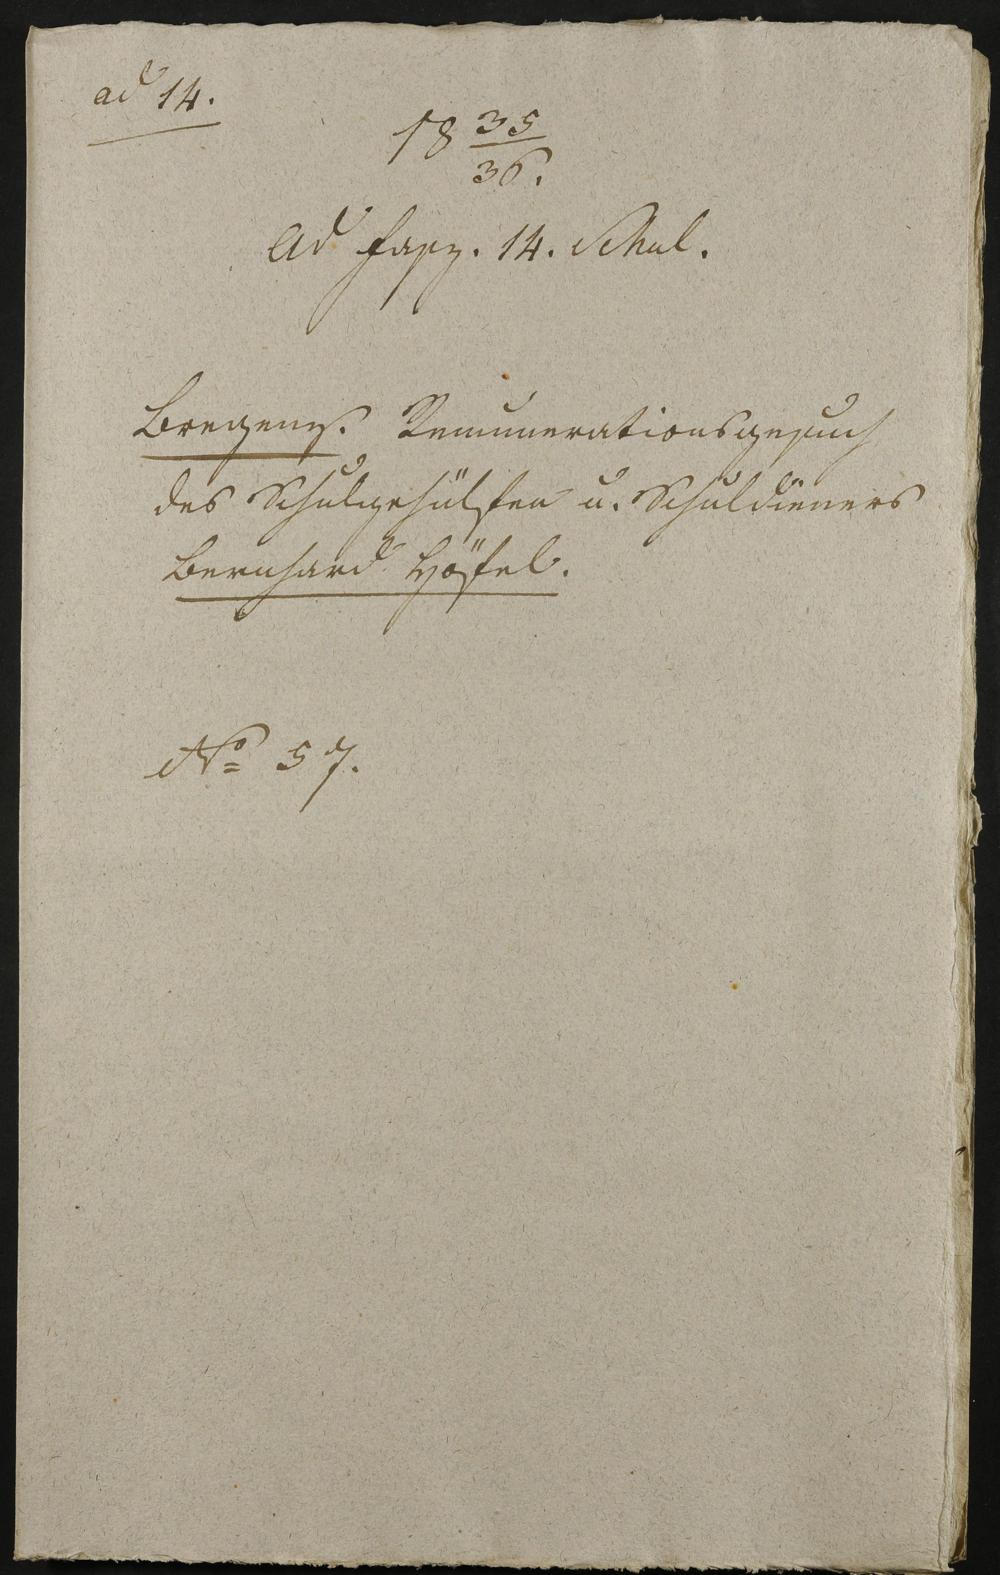 ad 14.
18 35
36.
Ad Fasz. 14. Schul.
Bregenz. Remunerationsgesuch
des Schulgehülfen u. Schuldieners
Bernhard Höfel.
No 57.